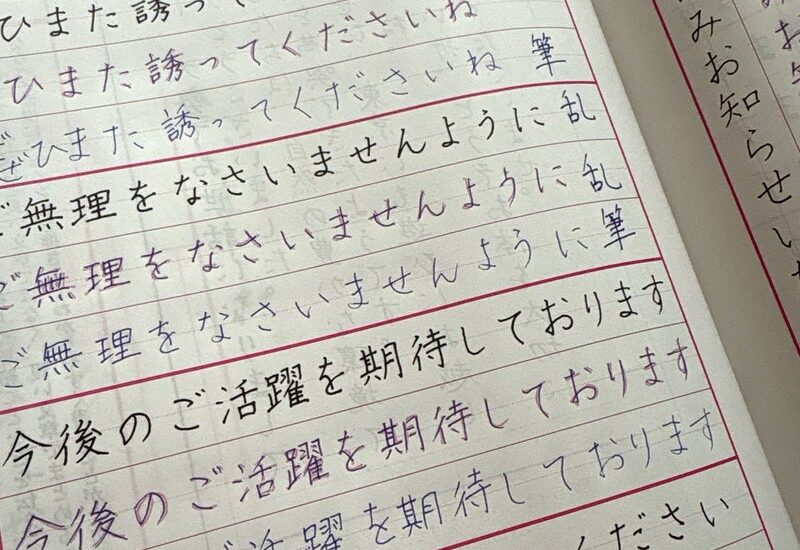 ひまた誘っ
ひまた誘ってくださいね
ぜひまた誘ってくださいね 筆
ご無理をなさいませんように 乱
ご無理をなさいませんように 乱
ご無理をなさいませんように 筆
今後のご活躍を期待しております
今後のご活躍を期待しております
ご活躍を期待しております
ください
みお知らせい